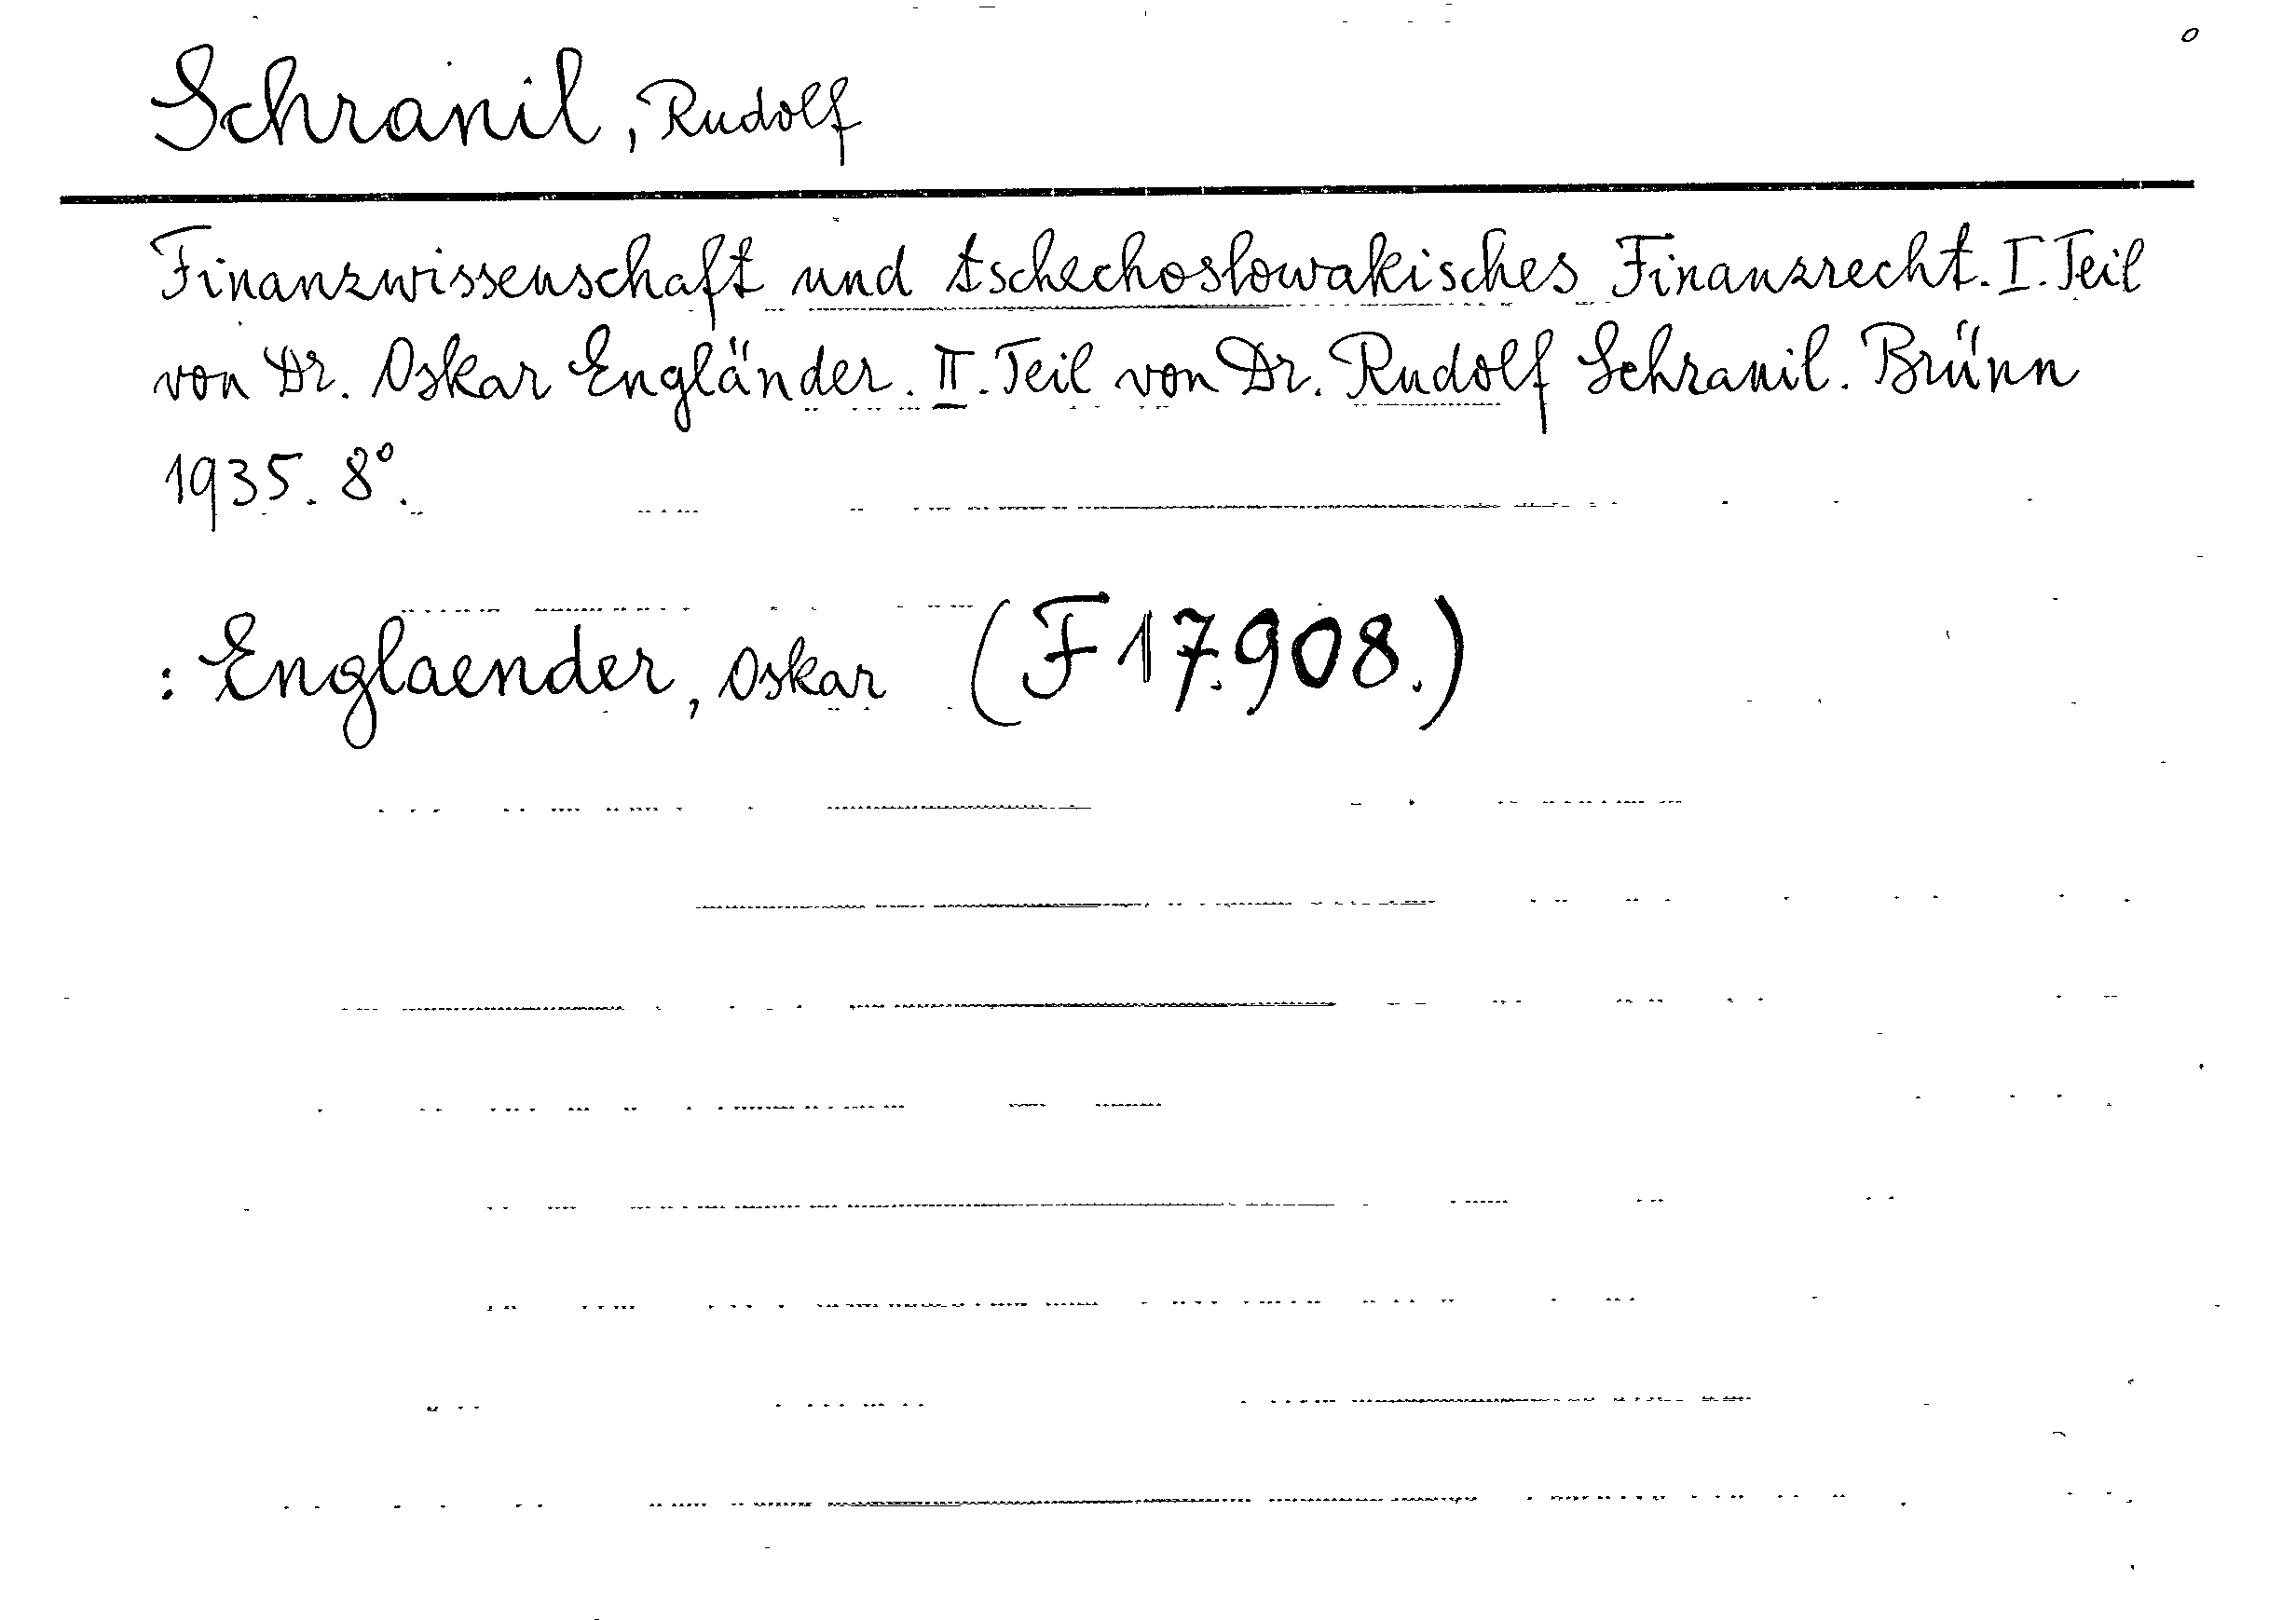 Schranil, Rudolf
Finanzwissenschaft und tschechoslowakisches Finanzrecht. I. Teil
von Dr. Oskar Engländer. II. Teil von Dr. Rudolf Schranil. Brünn
1935. 8°.
: Englaender, Oskar (F 17.908.)